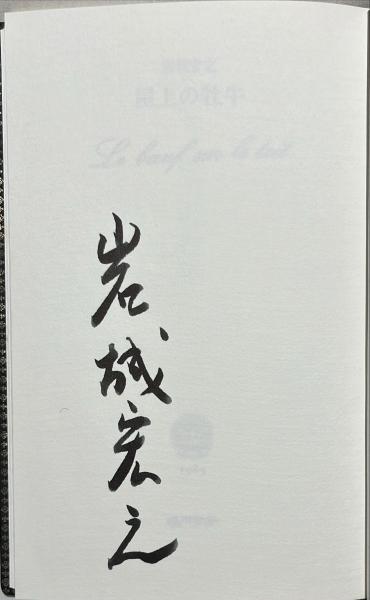 岩城宏之
屋上の牡牛
Le bœuf sur le toit
岩城宏之